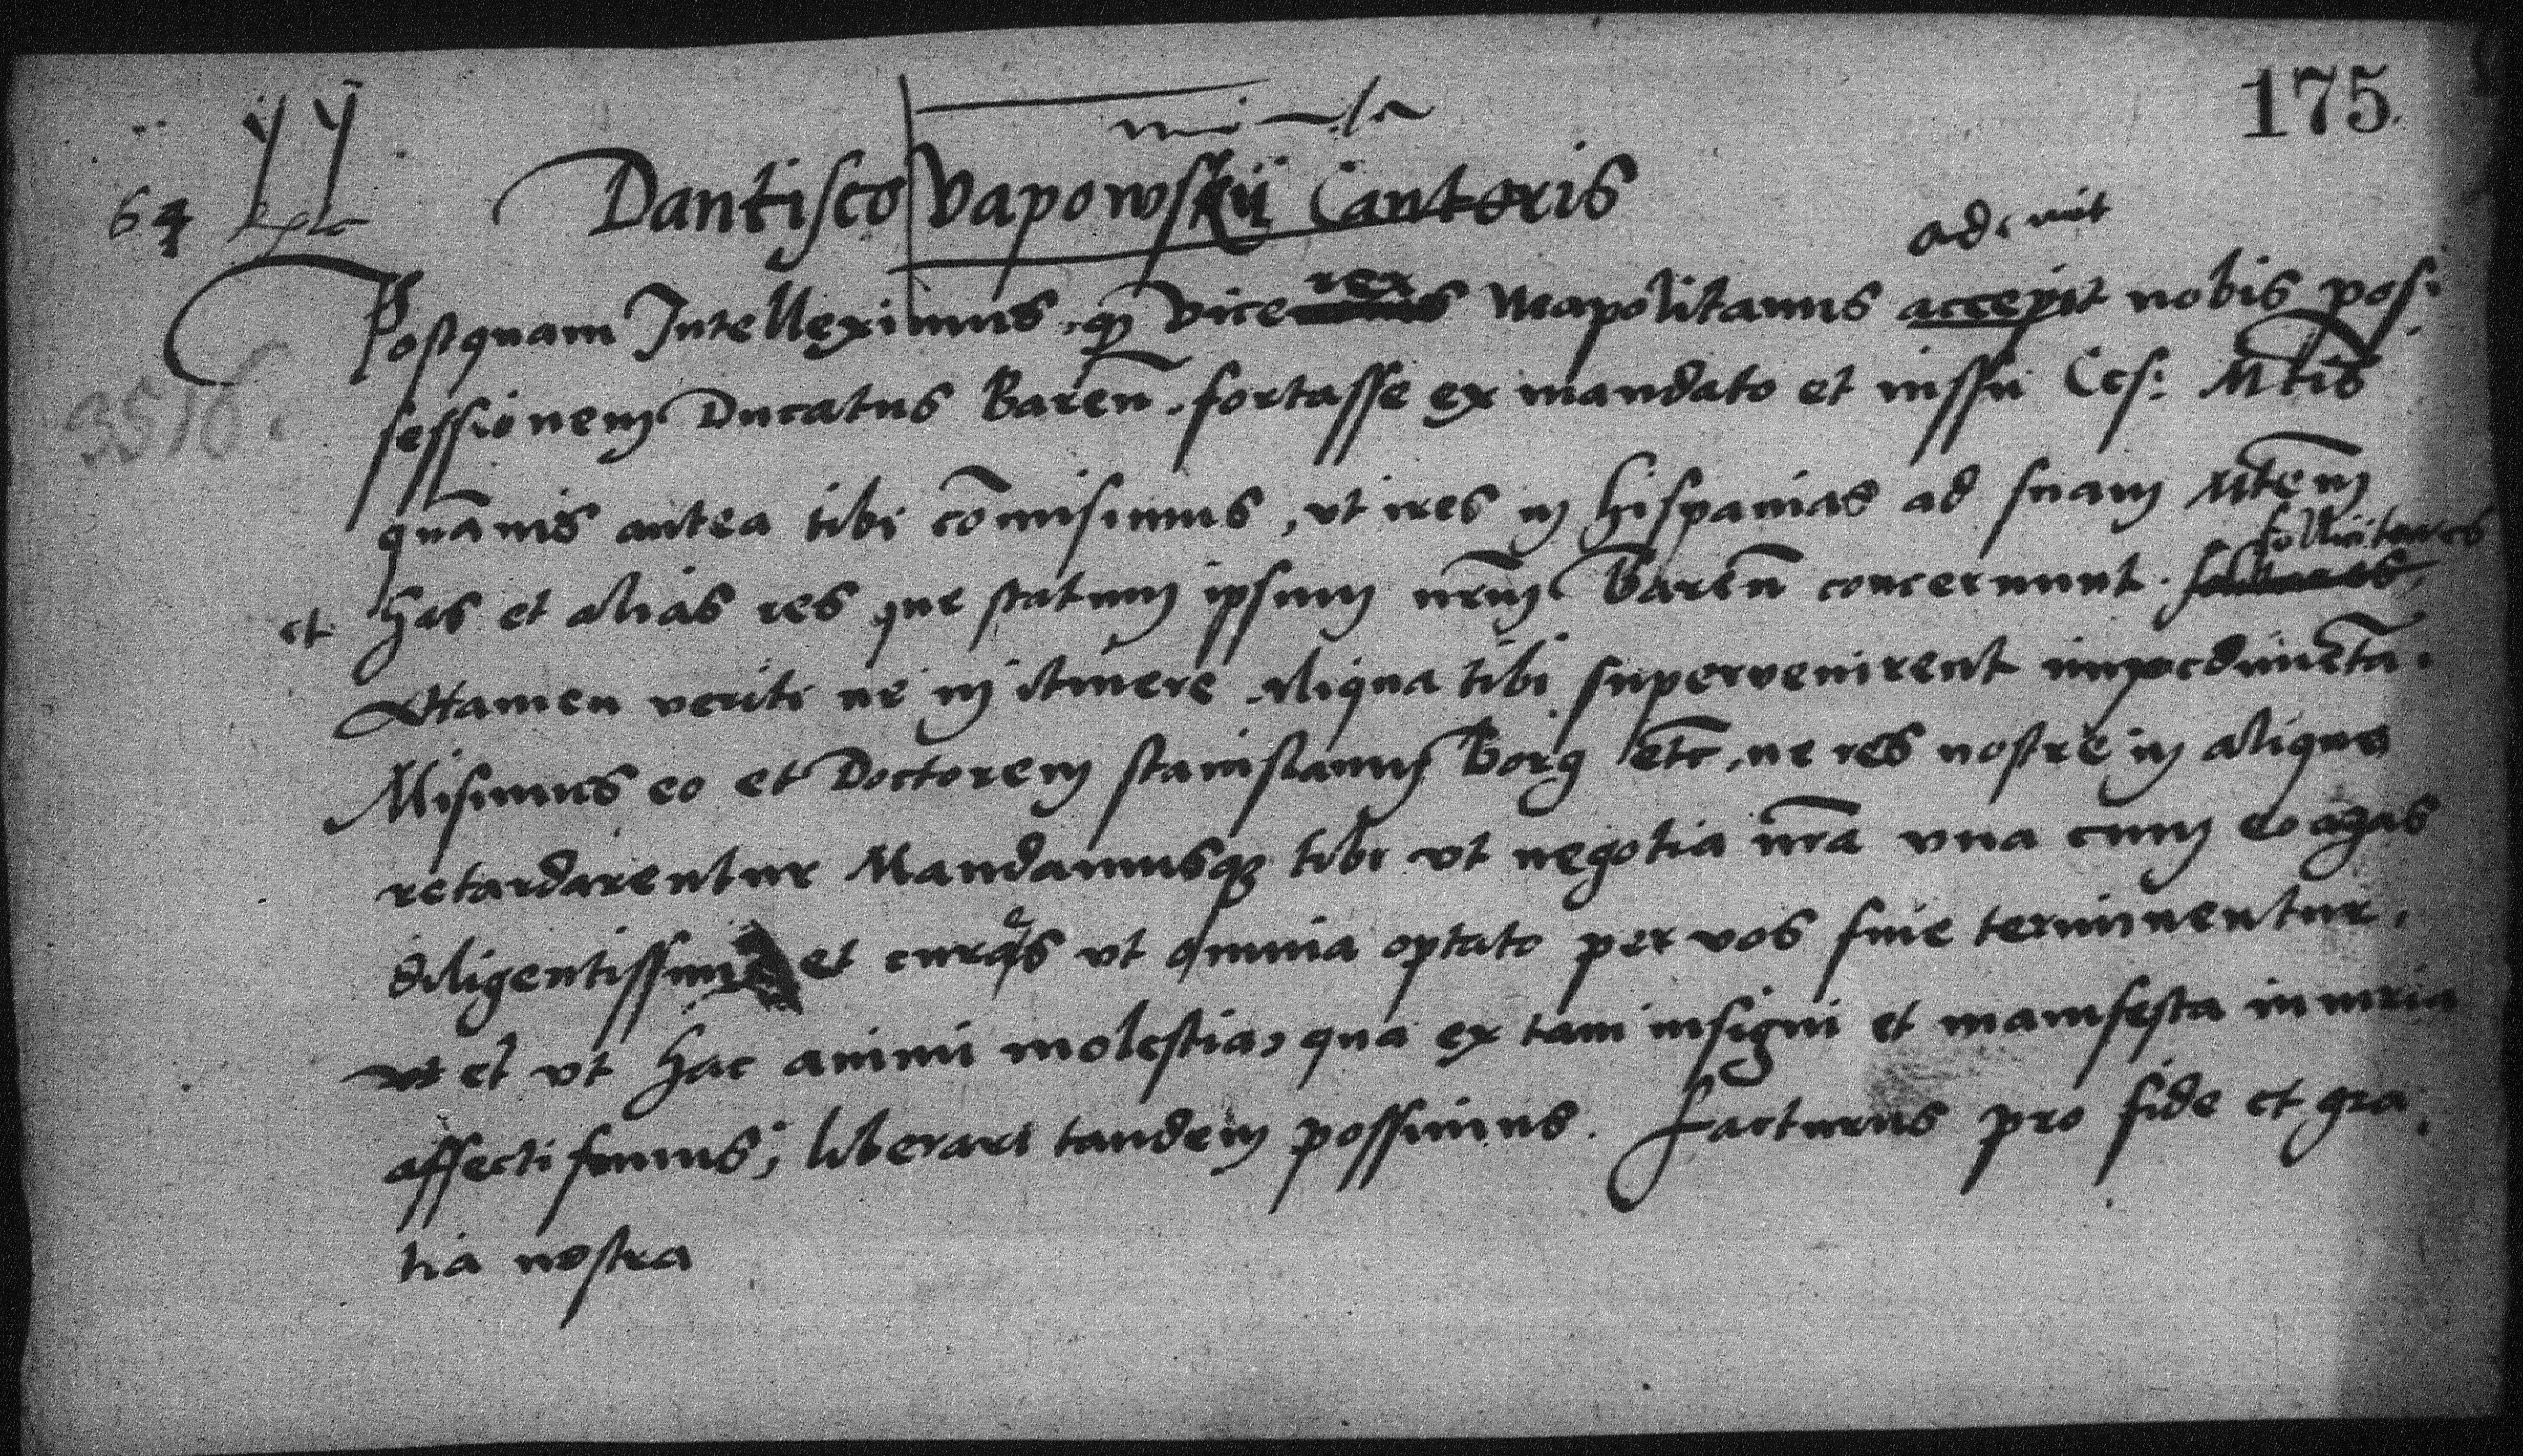 175.
Dantisco Vapowskii Cantoris
64
ademit
Postquam Intelleximus, qꝫ vice rex Neapolitanus accepit nobis pos:
3516.
sessionem Ducatus Bareñ. fortasse ex mandato et iussu Ces: Mtis
quãuis antea tibi cõmisimus, vt ires in hispanias ad suam Mtem̃
sollicitares
et has et alias res que statum ipsum nr̃m Bareñ concernunt.
Attamen veriti ne in itinere aliqua tibi supervenirent impedimẽta.
Misimus eo et Doctorem stanislaum Borg etc̃, ne res nostre in aliquo
retardarentur Mandamusqꝫ tibi vt negotia nr̃a vna cum eo agas
diligentissime et cures vt omnia optato per vos fine terminentur.
vt et vt hac animi molestia, qua ex tam insigni et manifesta iniuria
affecti sumus; liberari tandem possimus. Facturus pro fide et gra:
tia nostra